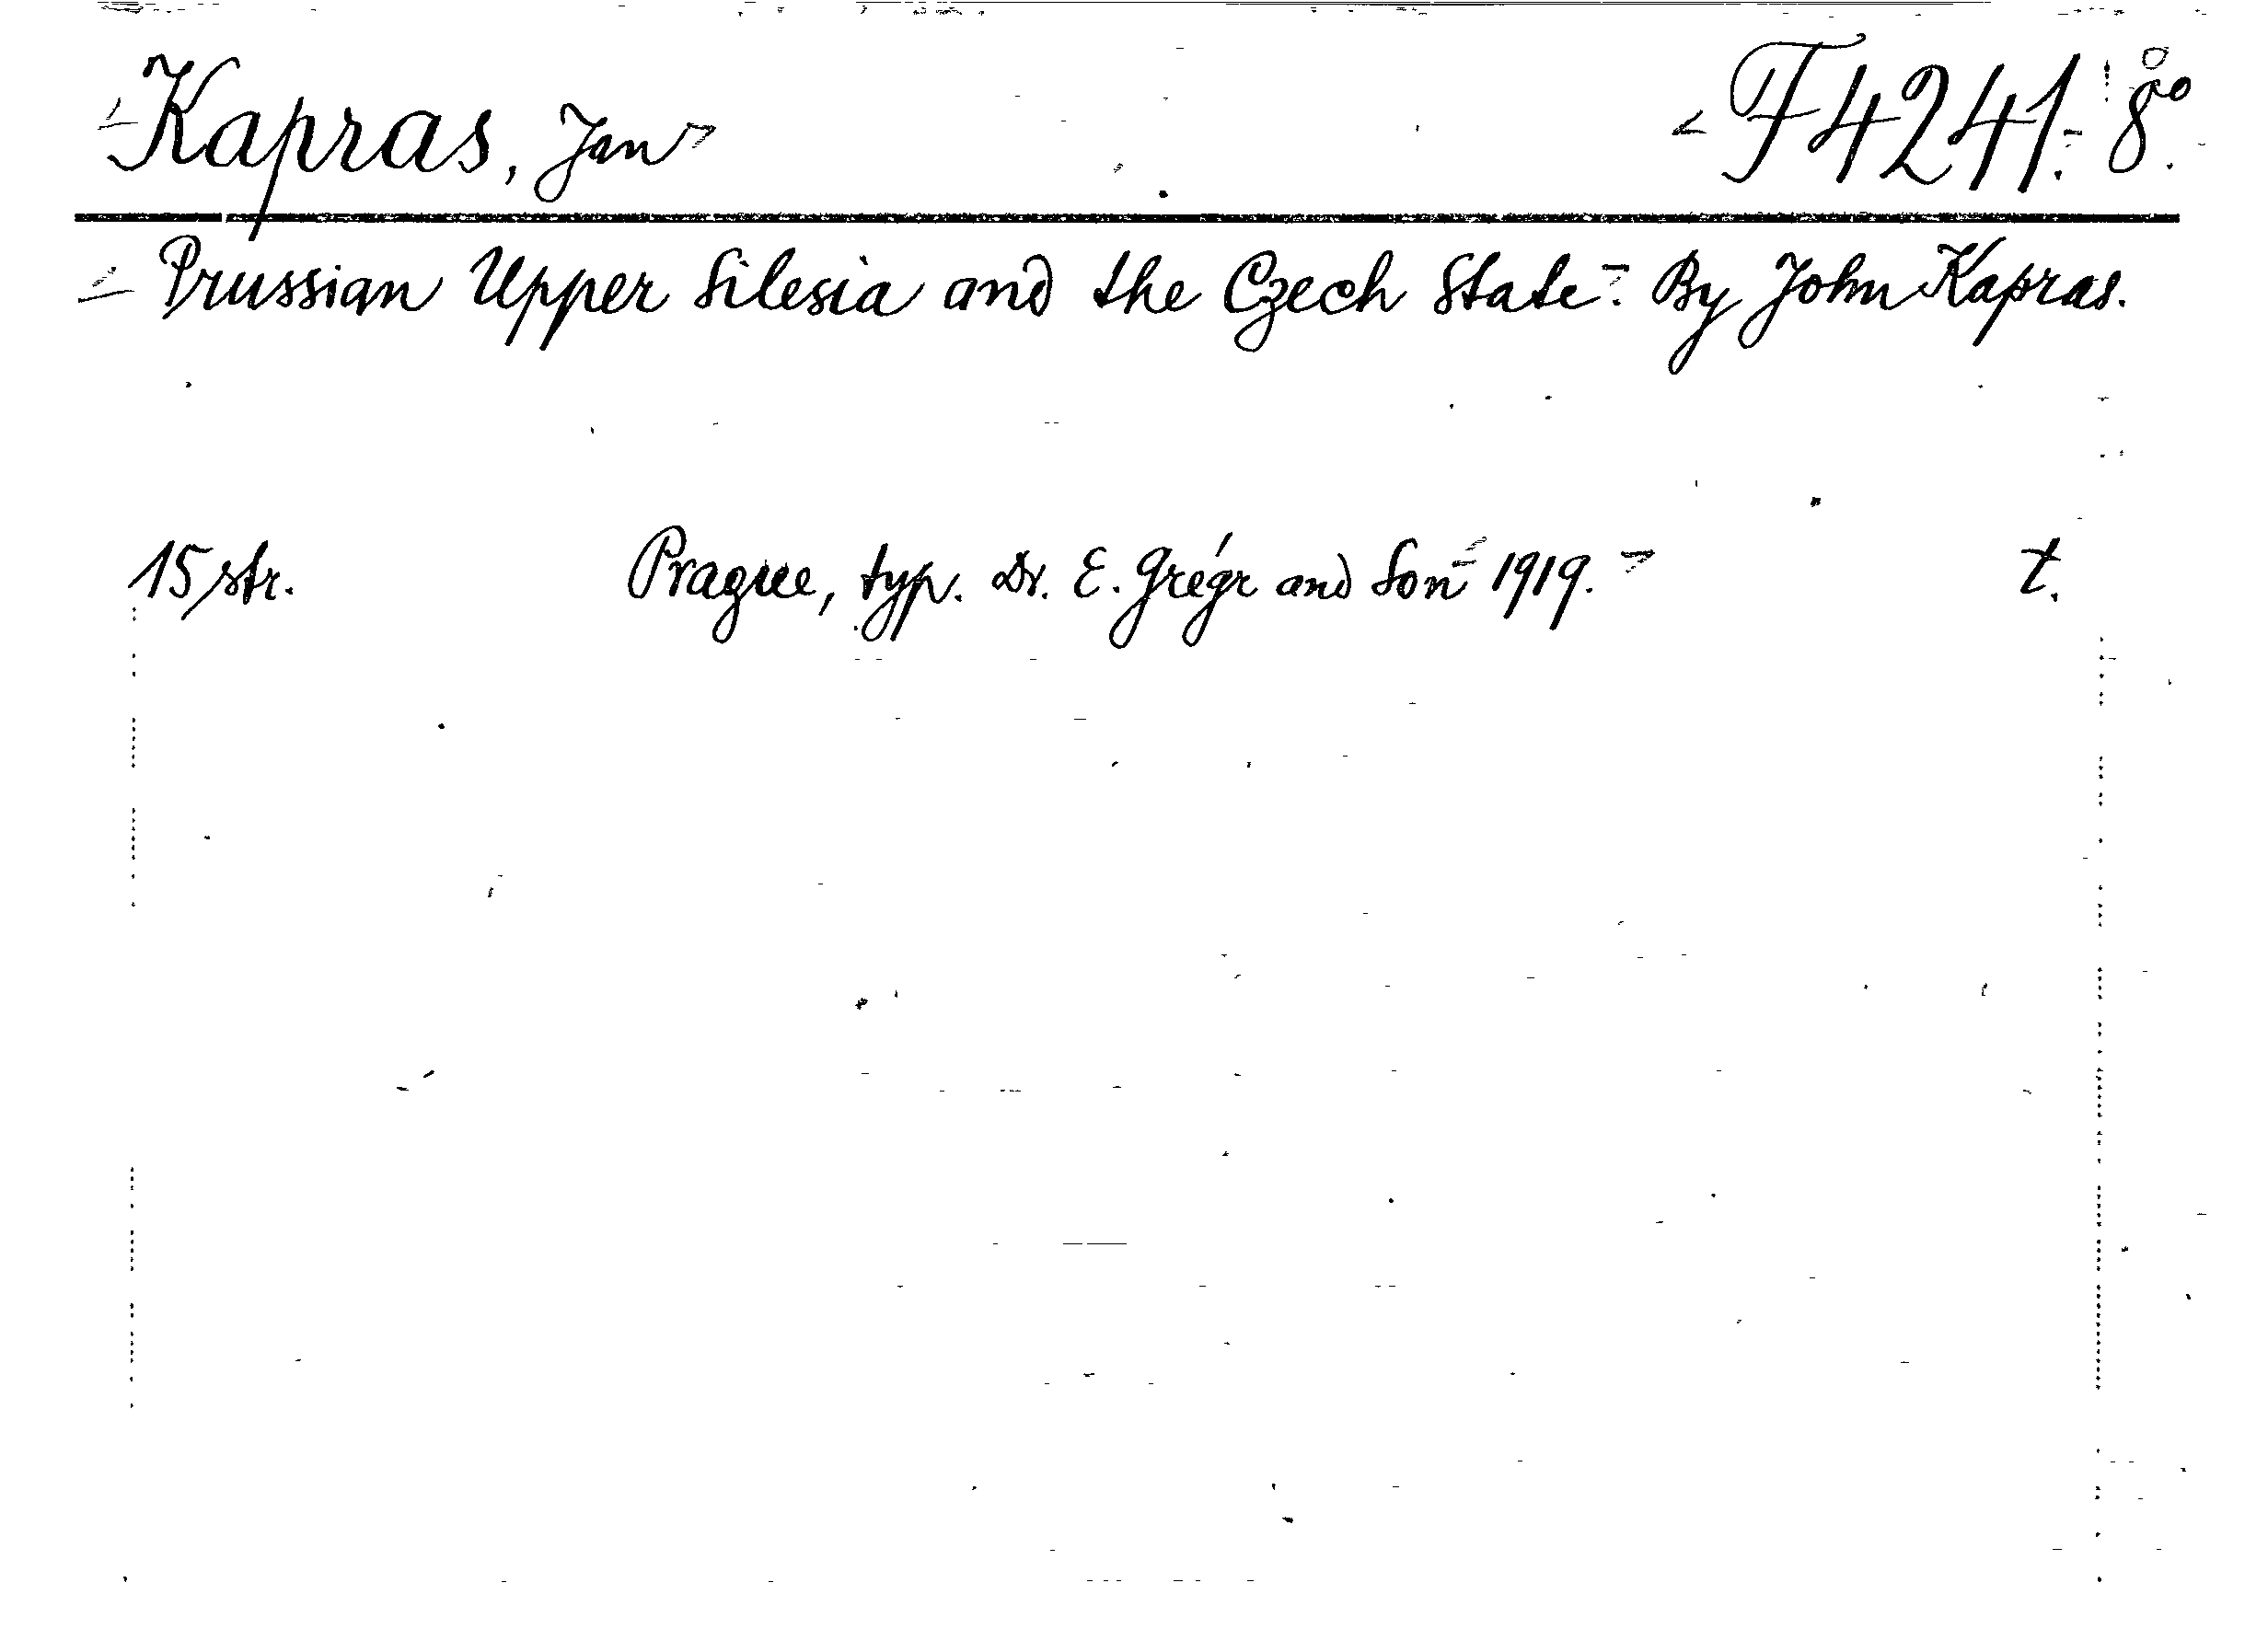 Kapras, Jan F 4241. 8°.
Prussian Upper Silesia and the Czech State. By John Kapras.
15 str. Prague, typ. Dr. E. Grégr and Son 1919. t.